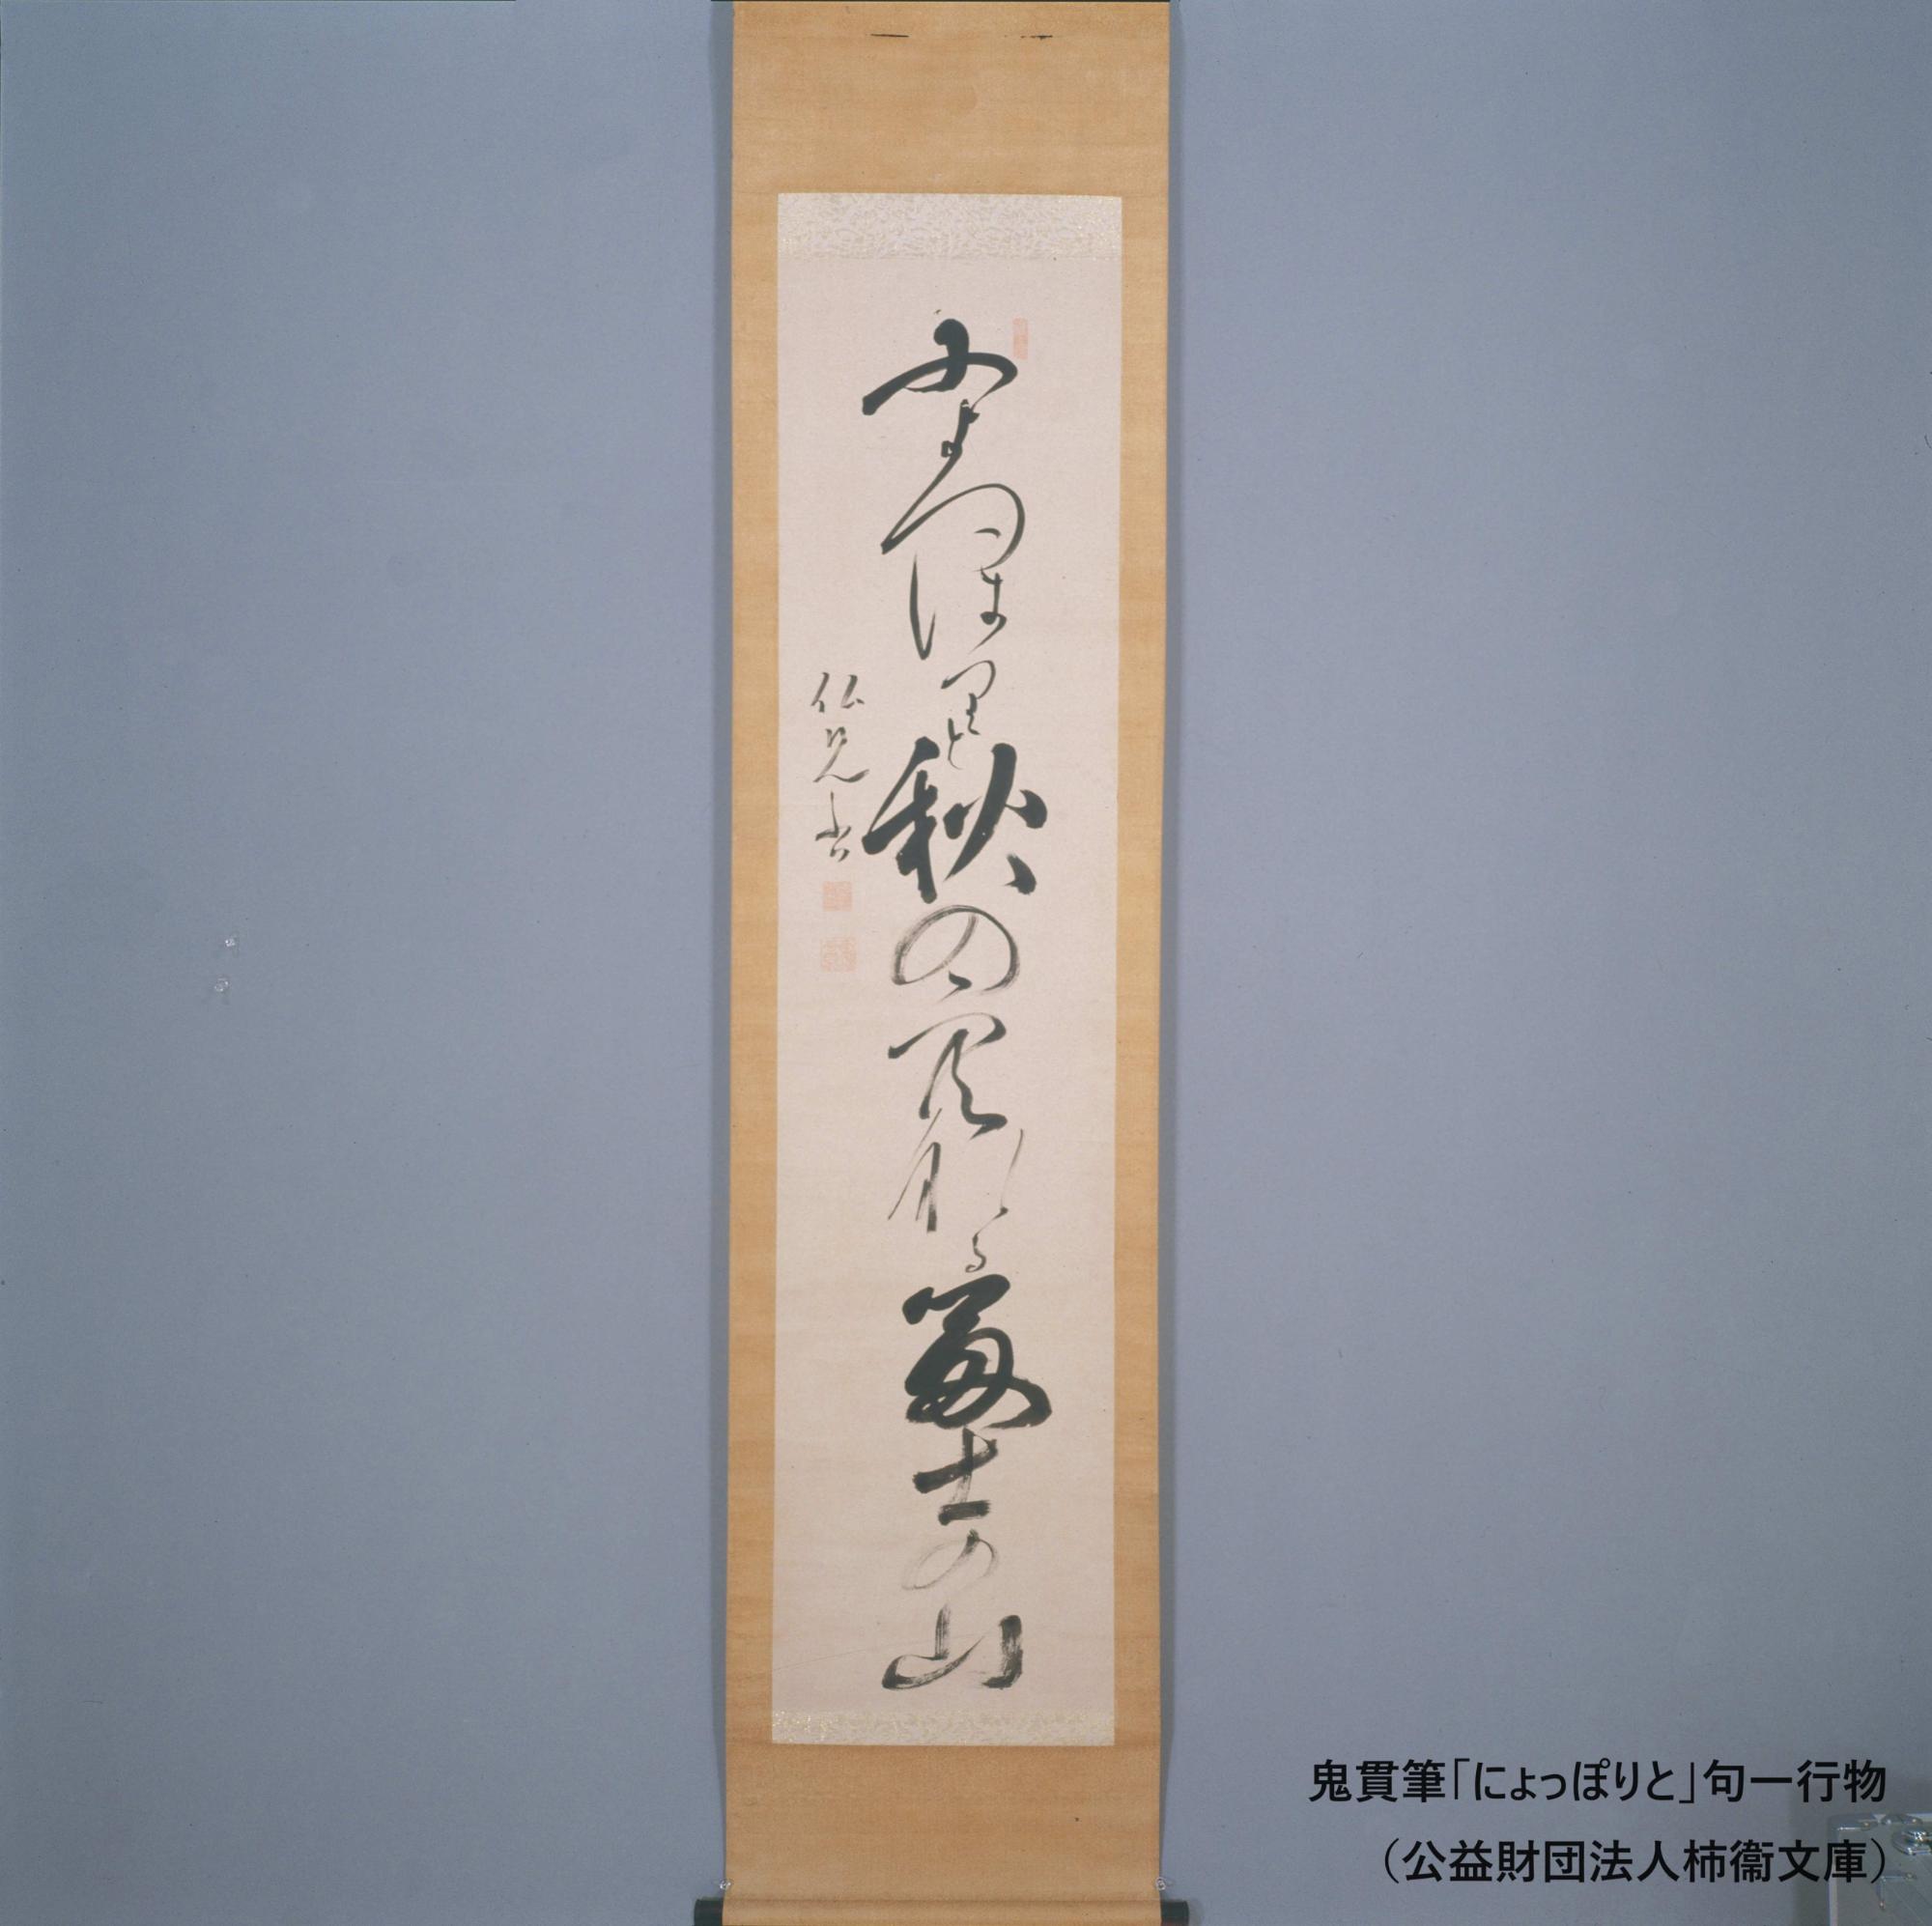 によつほりと秋の空なる富士の山
仏兄書
鬼貫筆「にょっぽりと」句一行物
（公益財団法人柿衞文庫）